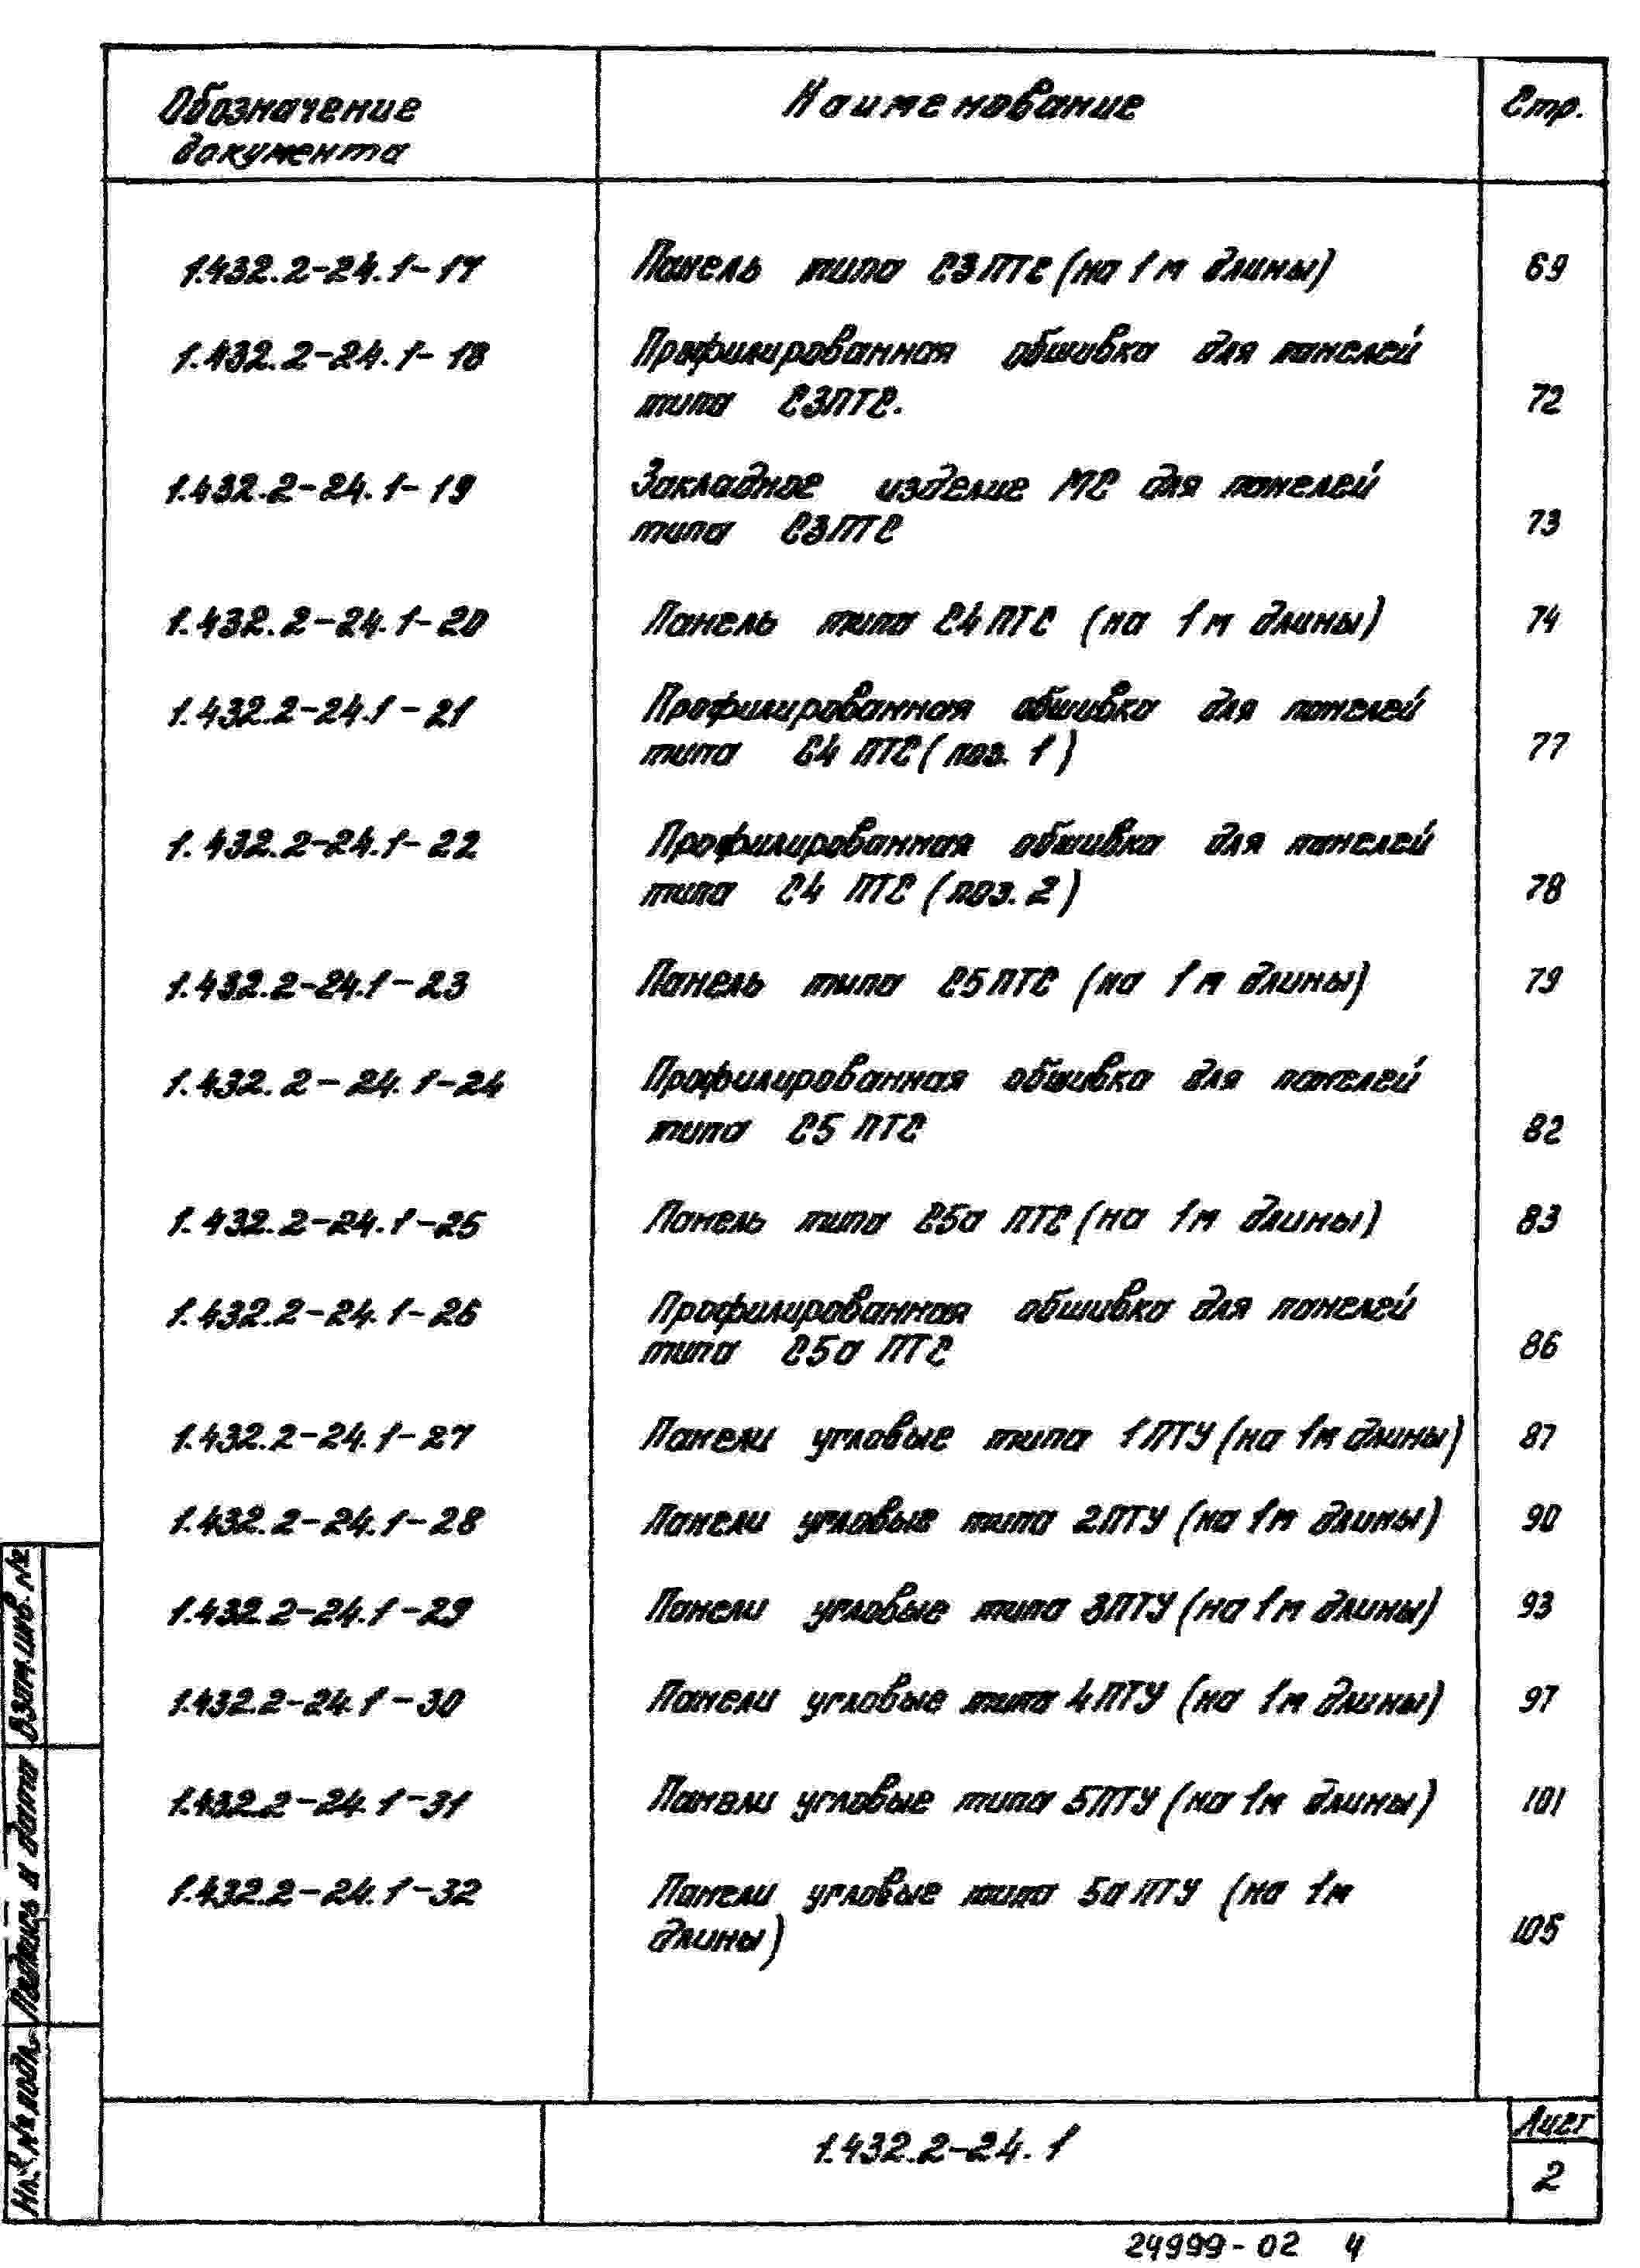 Обозначение документа Наименование Стр.
1.432.2-24.1-17 Панель типа С3ПТС (на 1м длины) 69
1.432.2-24.1-18 Профилированная обшивка для панелей
типа С3ПТС. 72
1.432.2-24.1-19 Закладное изделие МС для панелей
типа С3ПТС 73
1.432.2-24.1-20 Панель типа С4ПТС (на 1м длины) 74
1.432.2-24.1-21 Профилированная обшивка для панелей
типа С4 ПТС (поз. 1) 77
1.432.2-24.1-22 Профилированная обшивка для панелей
типа С4 ПТС (поз. 2) 78
1.432.2-24.1-23 Панель типа С5ПТС (на 1м длины) 79
1.432.2-24.1-24 Профилированная обшивка для панелей
типа С5 ПТС 82
1.432.2-24.1-25 Панель типа С5а ПТС (на 1м длины) 83
1.432.2-24.1-26 Профилированная обшивка для панелей
типа С5а ПТС 86
1.432.2-24.1-27 Панели угловые типа 1ПТУ (на 1м длины) 87
1.432.2-24.1-28 Панели угловые типа 2ПТУ (на 1м длины) 90
1.432.2-24.1-29 Панели угловые типа 3ПТУ (на 1м длины) 93
1.432.2-24.1-30 Панели угловые типа 4ПТУ (на 1м длины) 97
1.432.2-24.1-31 Панели угловые типа 5ПТУ (на 1м длины) 101
1.432.2-24.1-32 Панели угловые типа 5а ПТУ (на 1м
длины) 105
Взам.инв.№
Подпись и дата
Инв.№ подл.
1.432.2-24.1
Лист
2
24999-02 4